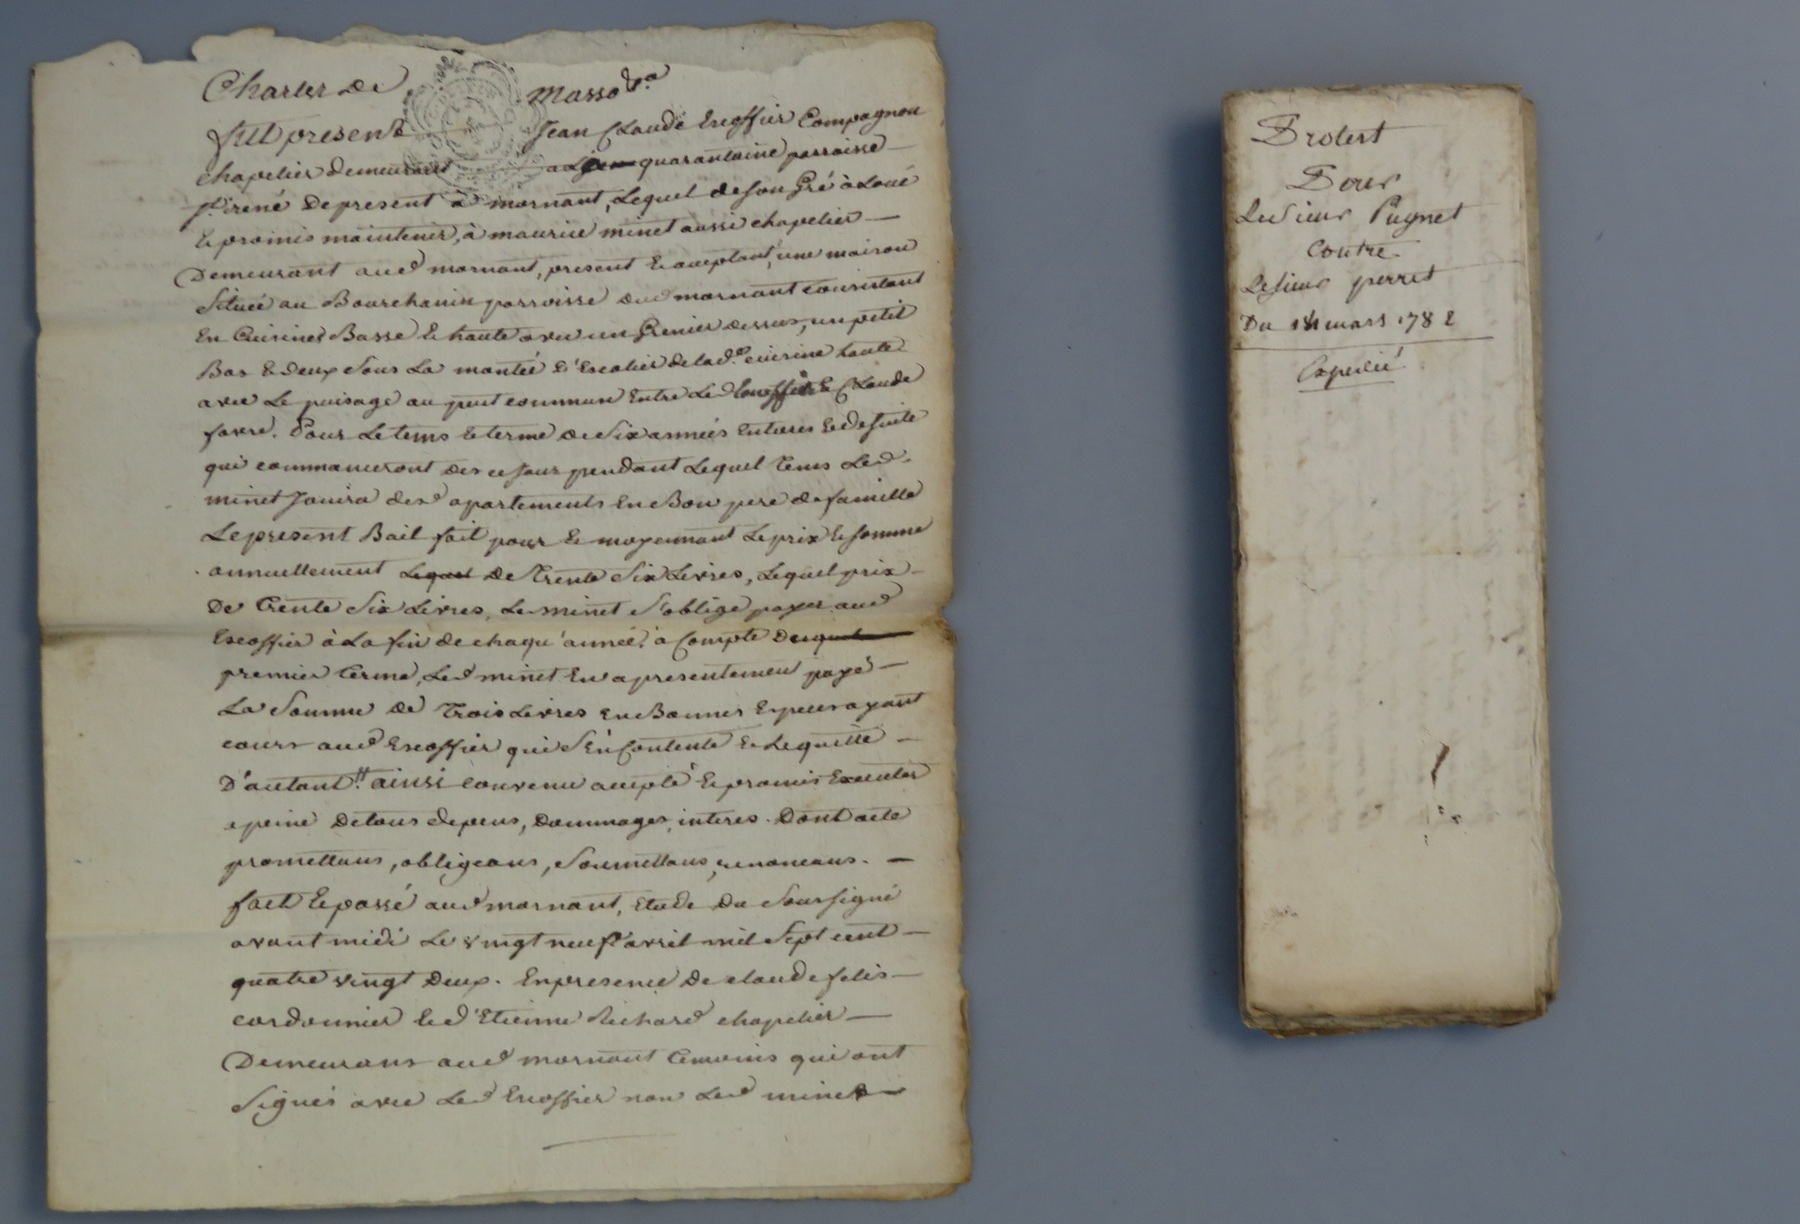 Charles De Masso &.a
fut present Jean Claude Escoffier Compagnon
chapelier demeurant quarantaine parroisse
St. irené De present à mornant, Lequel de son Gré à Loué
& promis maintenir, à maurice minet aussi chapelier
Demeurant aud mornant, present & acceptant, une maison
Située au Bourchanin parroisse dud mornant Consistant
En Cuisines Basse & haute avec un Grenier dessus, un petit
Bas & deux sous La montée D'Escalier de lad.e cuisine haute
avec Le puisage au puit commun Entre Led Escoffier & Claude
favre. Pour Le tems & terme de Six années Entieres & de suite
qui commanceront des ce Jour pendant Lequel tems Led.
minet Jouira desd apartements En Bon pere de famille
Le present Bail fait pour & moyennant Le prix & somme
annuellement Lequel De Trente Six Livres, Lequel prix
De trente Six Livres, Led minet s'oblige payer aud
Escoffier à La fin de chaqu'année, à Compte Duquel
premier terme, Led minet En a presentement payé
La Somme De Trois Livres En Bonnes Especes ayant
cours aud Escoffier qui s'En Contente & Le quitte
D'autant.tt ainsi convenu accepté & promis Executer
a peine De tous depens, Dommages, interes. Dont acte
promettans, obligeans, Soumettans, renonceans.
fait & passé aud mornant, Etude Du Soussigné
avant midi Le vingt neuf avril mil Sept cent
quatre vingt Deux. En presence De claude felis
cordonnier & d'Etienne Richard chapelier
Demeurans aud mornant temoins qui ont
Signés avec Led Escoffier non Led minet
Protest
Pour
Le Sieur Pugnet
Contre
Le Sieur perret
Du mars 1782
Expedié